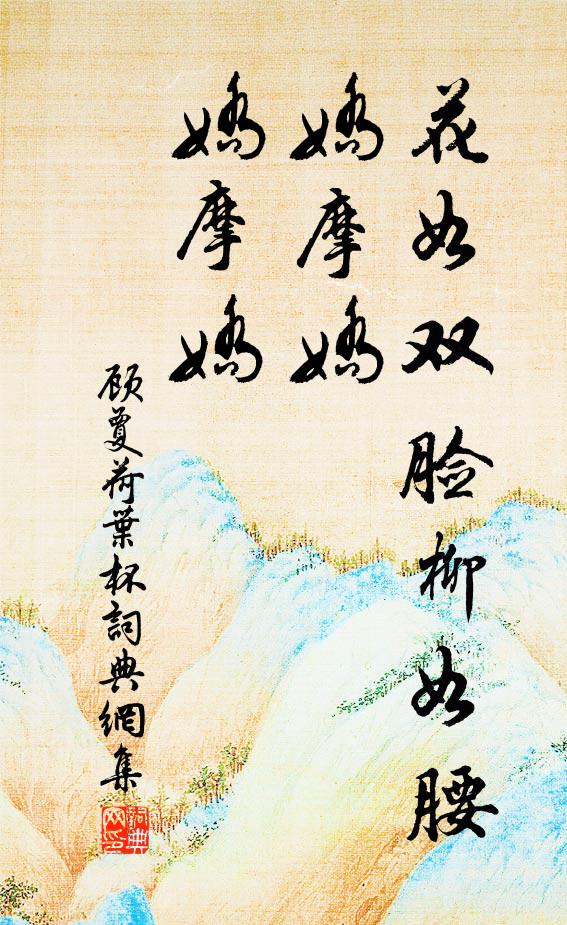 花如双脸柳如腰
娇摩娇
娇摩娇
顾夐荷葉杯詞典網集
詞典网印